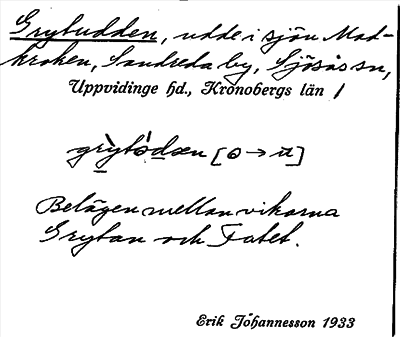 Grytudden, udde i sjön Mad-
kroken, Sandreda by, Sjösås sn,
Uppvidinge hd., Kronobergs län
grỳtódæn [o → u]
Belägen mellan vikarna
Grytan och Fatet.
Erik Johannesson 1933